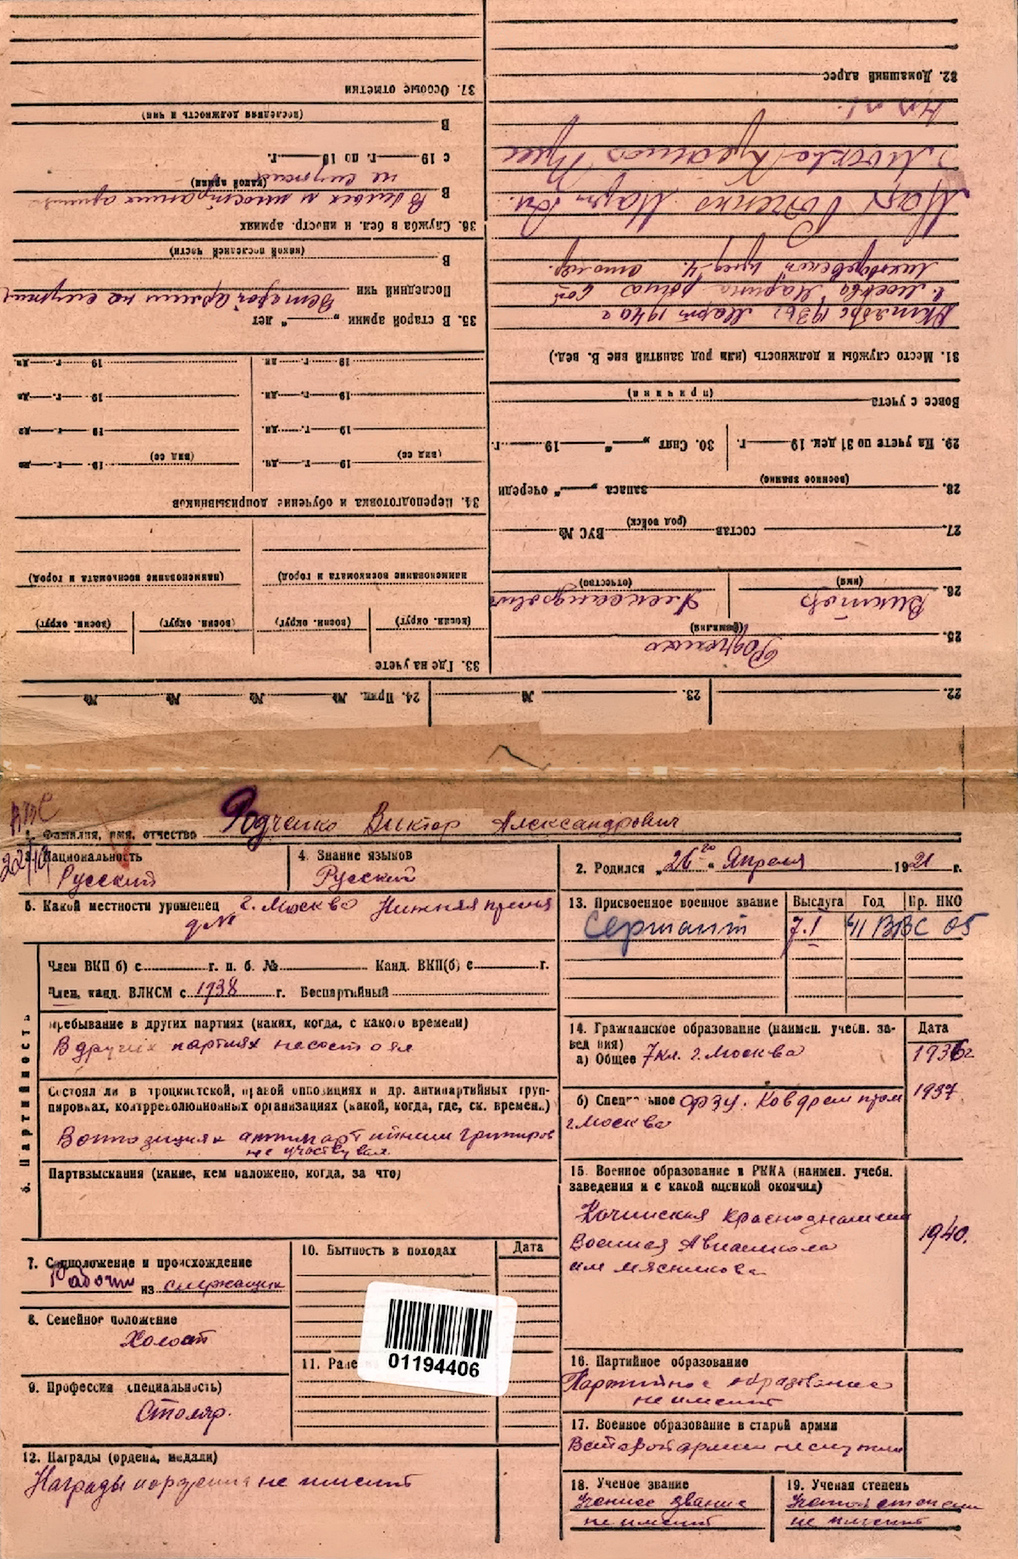 ВВС
1. Фамилия, имя, отчество Родченко Виктор Александрович
3. Национальность Русский
4. Знание языков Русский
2. Родился „26го“ Апреля 1921 г.
5. Какой местности уроженец г. Москва Нижняя
д №1
13. Присвоенное военное звание Выслуга Год Пр. НКО
Сержант 7.I 41 ВВС 05
6. Партийность
Член ВКП б) с г. п. б. № Канд. ВКП(б) с г.
Член, канд. ВЛКСМ с 1938 г. Беспартийный
Пребывание в других партиях (каких, когда, с какого времени)
В других партиях не состоял
Состоял ли в троцкистской, правой оппозициях и др. антипартийных груп-
пировках, контрреволюционных организациях (какой, когда, где, ск. времен.)
В оппозициях антипартийных группиров
не участвовал
Партвзыскания (какие, кем наложено, когда, за что)
14. Гражданское образование (наимен. учебн. за-
вед ния) Дата
а) Общее 7 кл. г. Москва 1936г
б) Специальное ФЗУ. 1937
г Москва
15. Военное образование в РККА (наимен. учебн.
заведения и с какой оценкой окончил)
Качинская краснознамен
Военная Авиашкола
им мясникова
1940.
7. Соцположение и происхождение
Рабочий из служащих
8. Семейное положение
Холост
9. Профессия (специальность)
Столяр.
10. Бытность в походах Дата
11. Ране
01194406
12. Награды (ордена, медали)
Награды не имеет
16. Партийное образование
Партийное образование
не имеет
17. Военное образование в старой армии
В старой армии не служил
18. Ученое звание
Ученое звание
не имеет
19. Ученая степень
Ученой степени
не имеет
22.
23. №
24. Прик. № № № №
25. Родченко
(фамилия)
26. Виктор Александрович
(имя) (отчество)
27. состав (род войск) ВУС №
28. (военное звание) запаса „ “ очереди
29. На учете по 31 дек. 19 г.
30. Снят „ “ 19 г.
Вовсе с учета
(причина)
31. Место службы и должность (или род занятий вне В. вед.)
Октябрь 1936г Март 1940г
г. Москва Марьина роща
столяр.
Мать Родченко Мар
г. Москва Красная Прес
32. Домашний адрес
33. Где на учете
(воен. округ) (воен. округ) (воен. округ) (воен. округ)
(наименование военкомата и город) (наименование военкомата и город)
34. Переподготовка и обучение допризывников
(вид ее) 19 г. дн. (вид ее) 19 г. дн
19 г. дн. 19 г. дн
19 г. дн. 19 г. дн
19 г. дн. 19 г. дн
35. В старой армии „ “ лет
Последний чин В старой армии не служил
В
(какой последней части)
36. Служба в бел. и иностр. армиях
В В белых и иностранных армиях
(какой армии) не служил
с 19 г. по 19 г.
В
(последняя должность и чин)
37. Особые отметки